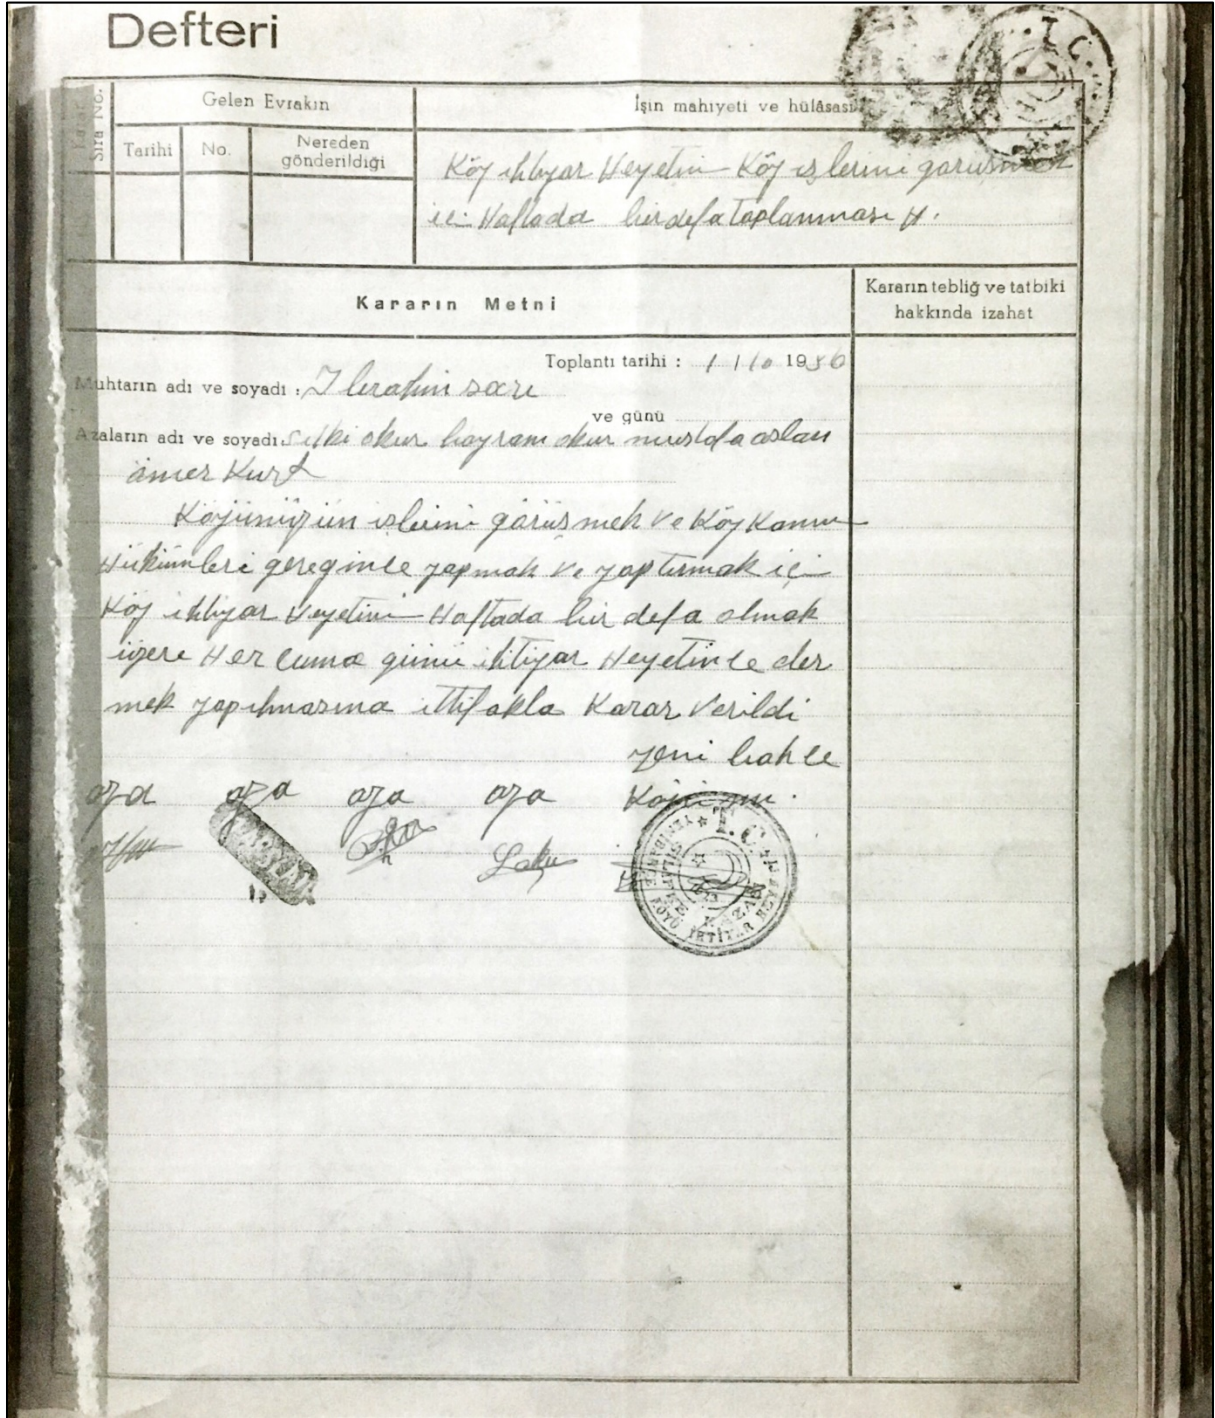 Defteri
Karar Sıra No.
Gelen Evrakın
İşin mahiyeti ve hülâsası
Tarihi
No.
Nereden gönderildiği
Köy ihtiyar Heyetin Köy işlerini görüsmek
içi Haftada bir defa toplanması H.
Kararın Metni
Kararın tebliğ ve tatbiki
hakkında izahat
Toplantı tarihi : 1/10 1956
Muhtarın adı ve soyadı : İbrahim sarı
ve günü
Azaların adı ve soyadı: okur bayram okur mustafa aslan
ömer Kurt
Köyümüzün işlerini görüsmek ve Köy Kanun
Hükümleri gereğince yapmak ve yaptırmak içi
Köy ihtiyar Heyetini Haftada bir defa olmak
üzere Her cuma günü ihtiyar Heyetince der
mek yapılmasına ittifakla Karar Verildi
yeni bahce
aza aza aza aza Köyü
T.C.
SİLİFKE KAZASI
YENİBAHÇE KÖYÜ İHTİYAR HEYETİ
T.C.